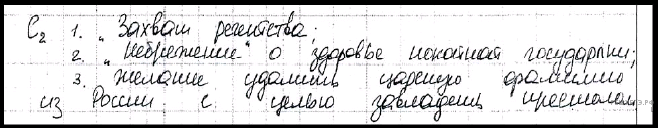 С2 1. „Захват регентства;
2. „небрежение“ о здоровье покойной государыни;
3. желание удалить царскую фамилию
из России с целью завладеть престолом